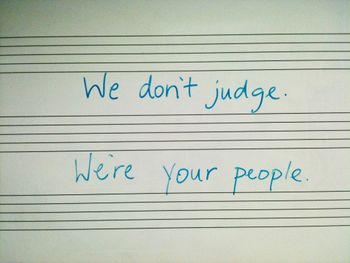 We don't judge.
We're your people.